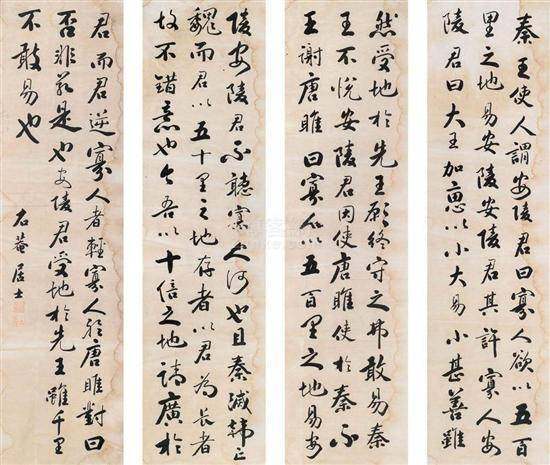 秦王使人謂安陵君曰寡人欲以五百
里之地易安陵安陵君其許寡人安
陵君曰大王加惠以小大易小甚善雖
然受地於先王願終守之弗敢易秦
王不悅安陵君因使唐雎使於秦不
王謝唐雎曰寡人以五百里之地易安
陵安陵君不聽寡人何也且秦滅韓亡
魏而君以五十里之地存者以君為長者
故不錯意也今吾以十倍之地請廣於
君而君逆寡人者輕寡人於唐雎對曰
否非若是也安陵君受地於先王雖千里
不敢易也
石菴居士